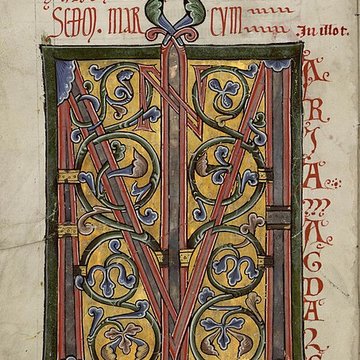 SCDM. MAR CVM
In illot.
M
ARIA MAGDA